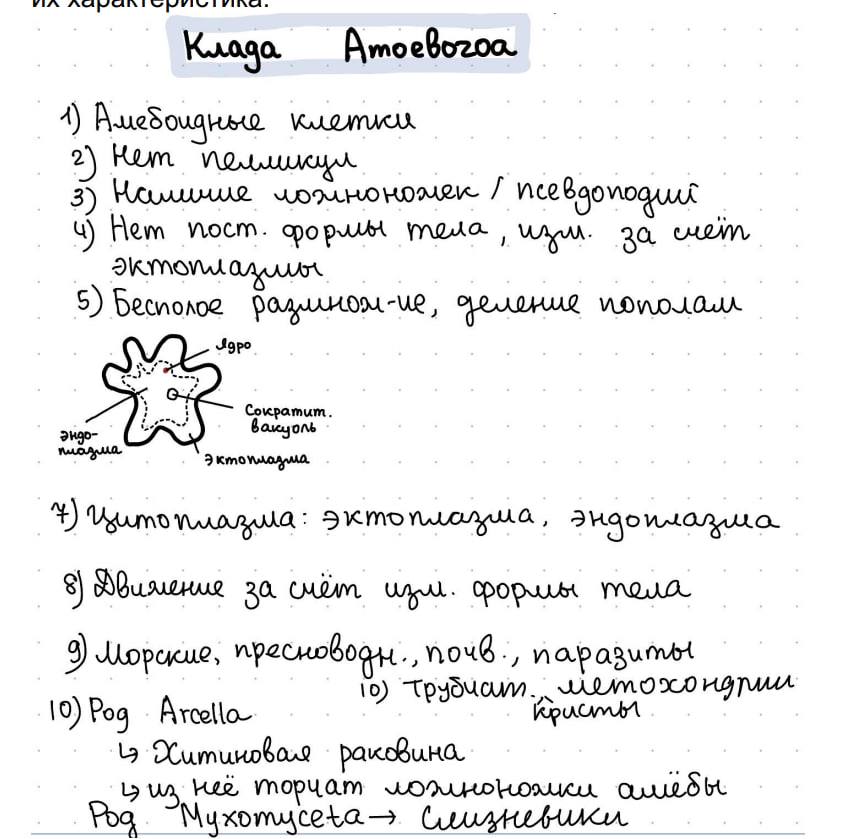 их характеристика.
Клада Amoebozoa
1) Амебоидные клетки
2) Нет пелликул
3) Наличие ложноножек / псевдоподий
4) Нет пост. формы тела, изм. за счёт
эктоплазмы
5) Бесполое размнож-ие, деление пополам
Ядро
Сократит.
вакуоль
Эндо-
плазма
Эктоплазма
7) Цитоплазма: эктоплазма, эндоплазма
8) Движение за счёт изм. формы тела
9) Морские, пресноводн., почв., паразиты
10) Трубчат. метохондрии
кристы
10) Род Arcella
↳ Хитиновая раковина
↳ из неё торчат ложноножки амёбы
Род Myxomyceta → Слизневики